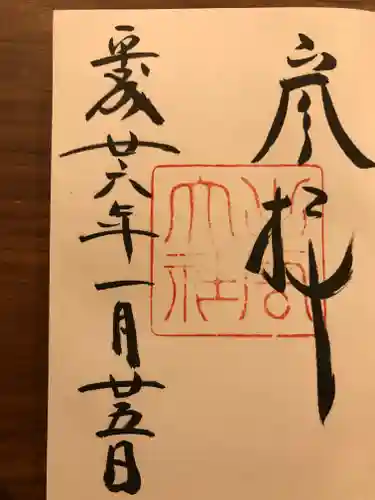 参拝
大社
平成廿六年一月廿五日